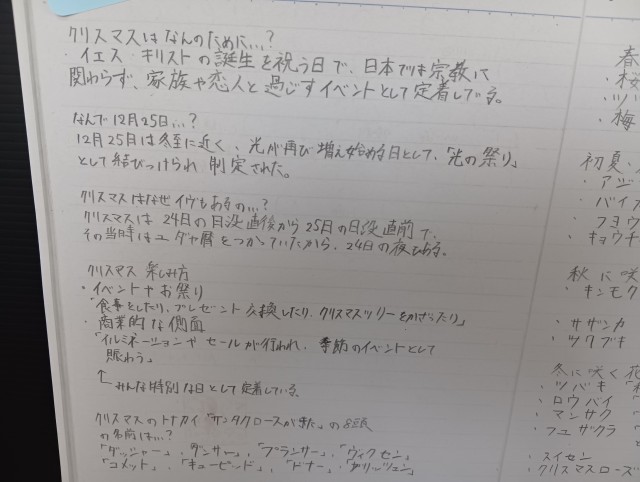 クリスマスはなんのために…?
・イエス・キリストの誕生を祝う日で、日本では宗教に
関わらず、家族や恋人と過ごすイベントとして定着してる。
なんで12月25日…?
12月25日は冬至に近く、光が再び増え始める日として、「光の祭り」
として結びつけられ制定された。
クリスマスはなぜイヴもあるの…?
クリスマスは24日の日没直後から25日の日没直前で、
その当時はユダヤ暦をつかっていたから、24日の夜もある。
クリスマス 楽しみ方
・イベントやお祭り
「食事をしたり、プレゼント交換したり、クリスマスツリーをかざったり」
・商業的な側面
「イルミネーションやセールが行われ、季節のイベントとして
賑わう」
↑みんな特別な日として定着している。
クリスマスのトナカイ「サンタクロースが来た」の8頭
の名前は…?
「ダッシャー」、「ダンサー」、「プランサー」、「ヴィクセン」
「コメット」、「キューピッド」、「ドナー」、「ブリッツェン」
春
・桜
・ツツ
・梅
初夏、
・アジ
・バイス
・フヨウ
・キョウチ
秋に咲
・キンモク
・サザンカ
・ツワブキ
冬に咲く花
・ツバキ
・ロウバイ
・マンサク
・フユザクラ
・スイセン
・クリスマスローズ